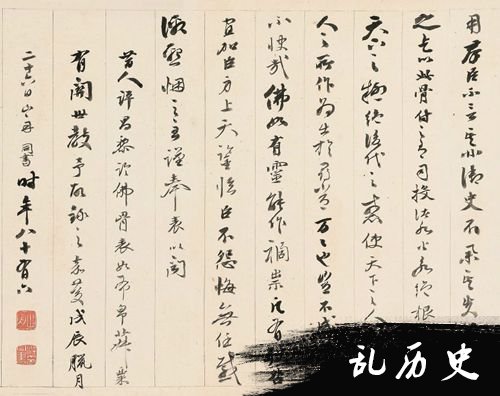 用羣臣不言其非御史不舉其失
之乞以此骨付之有司投諸水火永絕根
天下之疑絕後代之惑使天下之人
人之所作為出於尋常萬萬也豈不盛
不快哉佛如有靈能作禍祟凡有殃咎
宜加臣身上天鑒臨臣不怨悔無任感
激懇悃之至謹奉表以聞
昔人評昌黎論佛骨表如布帛菽粟
有關世教予故錄之嘉慶戊辰臘月
二十六日山舟同書時年八十有六
乱历史